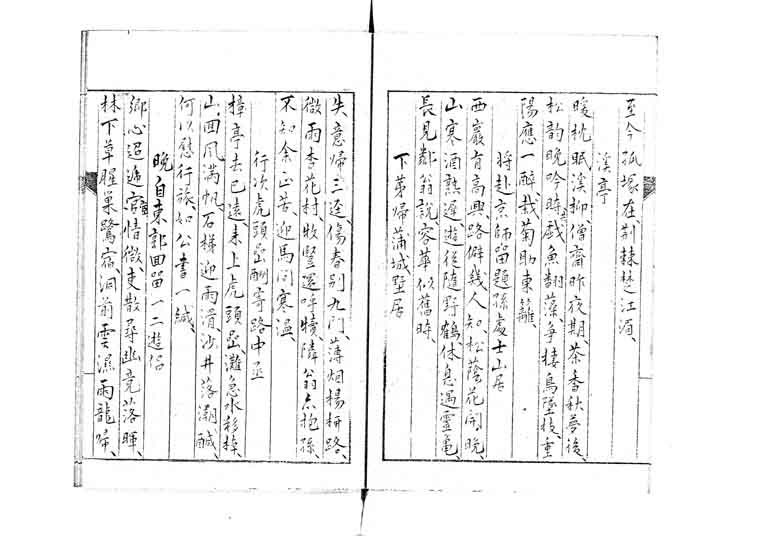 至今孤塚在荆棘楚江湄、
溪亭
暖枕眠溪柳、僧齋昨夜期、茶香秋夢後、
松韵晚吟時、戲魚翻藻、爭棲鳥墜枝重
陽應一醉栽菊助東籬、
將赴京師留題孫處士山居
西巖有高興、路僻幾人知、松蔭花開晩、
山寒酒熟遲遊從隨野鶴、休息遇靈龜、
長見鄰翁說、容華似舊時、
下苐歸蒲城墅居
失意歸三逕、傷春别九門、薄烟楊柳路、
微雨杏花村、牧豎還呼犢、隣翁亦抱孫、
不知余正苦、迎馬問寒溫、
行次虎頭嵒酬寄路中丞
樟亭去已遠、來上虎頭嵒、灘急水移棹、
山回風滿帆、石梯迎雨滑沙井落潮鹹、
何以慰行旅如公書一緘、
晚自東郭回留一二遊侣
鄉心迢遞宦情微、吏散尋幽竟落暉、
林下草腥巢鷺宿、洞前雲濕雨龍歸、